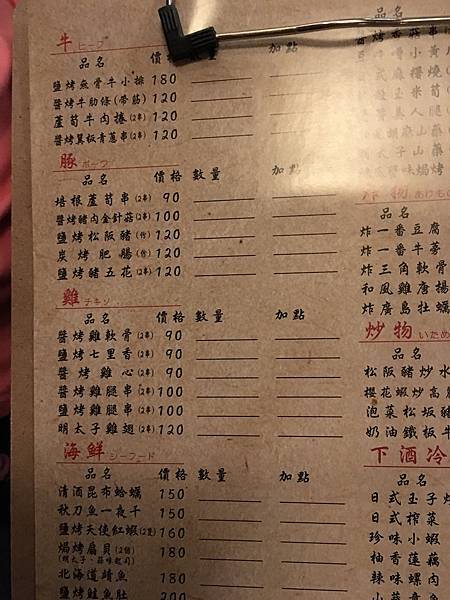 牛 ビーフ
品名 價格 數量 加點
鹽烤無骨牛小排 180
醬烤牛肋條(帶筋) 120
蘆筍牛肉捲(2串) 120
醬烤翼板青蔥串(2串) 120
豚 ポーク
品名 價格 數量 加點
培根蘆筍串(2串) 90
醬烤豬肉金針菇(2串) 100
鹽烤松阪豬(份) 120
炭烤肥腸(份) 120
鹽烤豬五花(2串) 120
雞 チキン
品名 價格 數量 加點
醬烤雞軟骨(2串) 90
鹽烤七里香(2串) 90
醬烤雞心(2串) 90
醬烤雞腿串(2串) 100
鹽烤雞腿串(2串) 100
明太子雞翅(2串) 120
海鮮 シーフード
品名 價格 數量 加點
清酒昆布蛤蠣 150
秋刀魚一夜干 150
鹽烤天使紅蝦(2隻) 160
焗烤扇貝(2個) 180
(明太子、蒜味起司)
北海道鯖魚 180
鹽烤鮭魚肚 200
炸物 あげもの
品名
炸一番豆腐
炸一番牛蒡
炸三角軟骨
和風雞唐揚
炸廣島牡蠣
炒物 いため
品名
松阪豬炒水
櫻花蝦炒高麗
泡菜松坂豬
奶油鐵板牛
下酒冷
品名
日式玉子燒
日式榨菜
珍味小蝦
柚香蓮藕
辣味螺肉